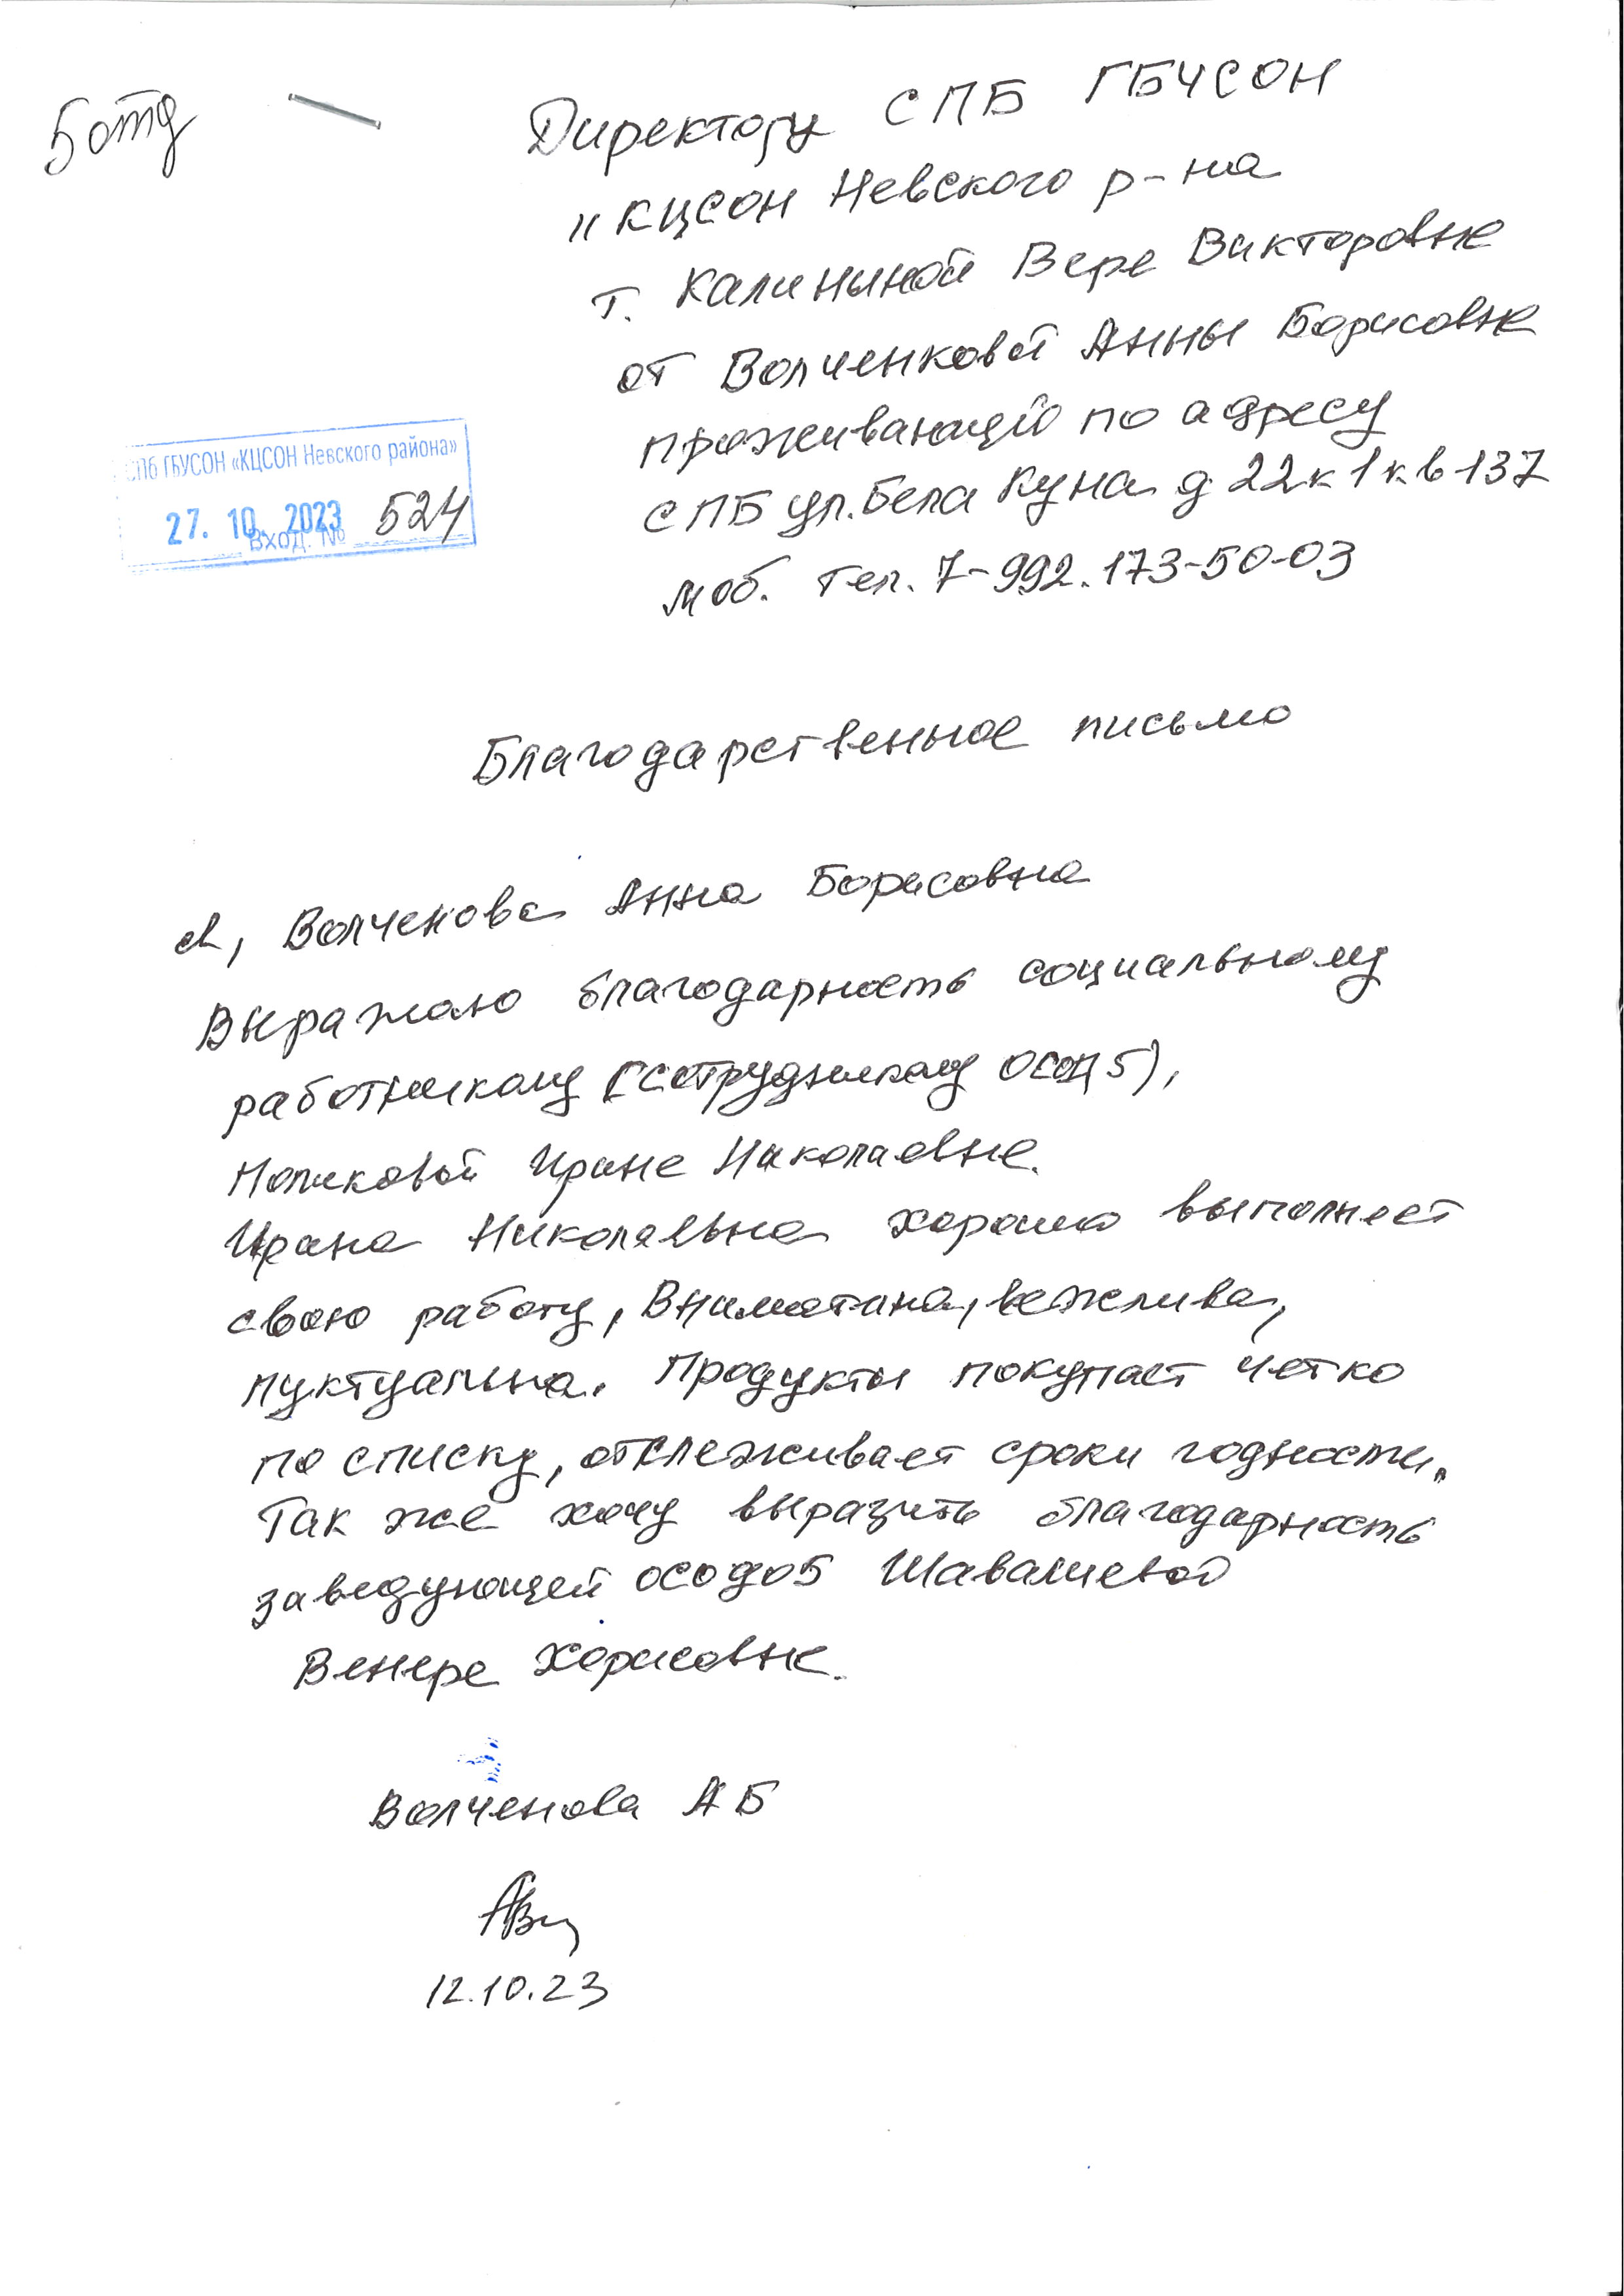 5 отд
Директору СПБ ГБУСОН
"КЦСОН Невского р-на
т. Калининой Вере Викторовне
от Волченковой Анны Борисовне
проживающей по адресу
СПБ ул. Бела Куна д 22 к 1 кв 137
моб. тел. 7-992.173-50-03
СПб ГБУСОН «КЦСОН Невского района»
27. 10. 2023 524
Вход. №
Благодарственное письмо
Я, Волченова Анна Борисовна
Выражаю благодарность социальному
работнику (сотруднику 5),
Ирине Николаевне.
Ирина Николаевна хорошо выполняет
свою работу, Внимательна, вежлива,
пуктуальна. Продукты покупает четко
по списку, отслеживает сроки годности.
Так же хочу выразить благодарность
заведующей ОСОДО5 Шавалиевой
Венере Хорисовне.
Волченова А Б
12.10.23